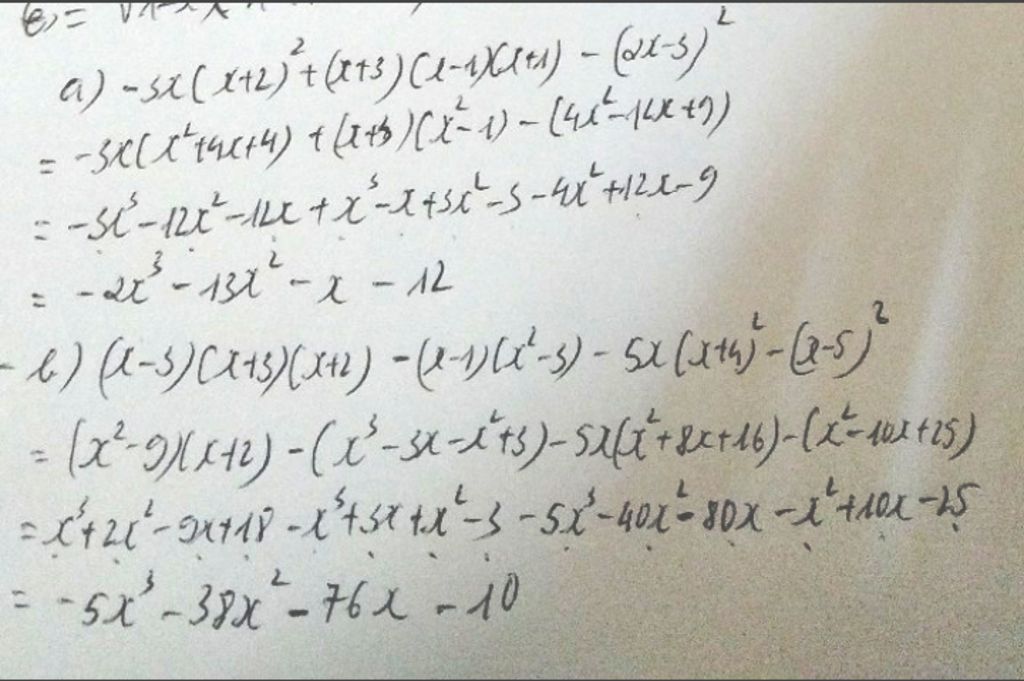 a) -3x(x+2)²+(x+3)(x-1)(x+1) - (2x-3)²
= -3x(x²+4x+4) + (x+3)(x²-1) - (4x²-12x+9)
= -3x³-12x²-12x + x³-x+3x²-3-4x²+12x-9
= -2x³ - 13x² - x - 12
b) (x-3)(x+3)(x+2) - (x-1)(x²-3) - 5x(x+4)² - (x-5)²
= (x²-9)(x+2) - (x³-3x-x²+3) - 5x(x²+8x+16) - (x²-10x+25)
= x³+2x²-9x+18-x³+3x+x²-3-5x³-40x²-80x-x²+10x-25
= -5x³-38x²-76x-10